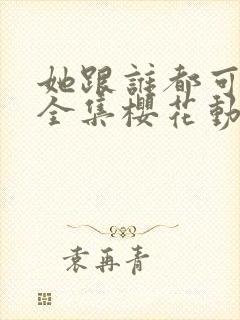 她跟誰都可
全集櫻花動
袁再青